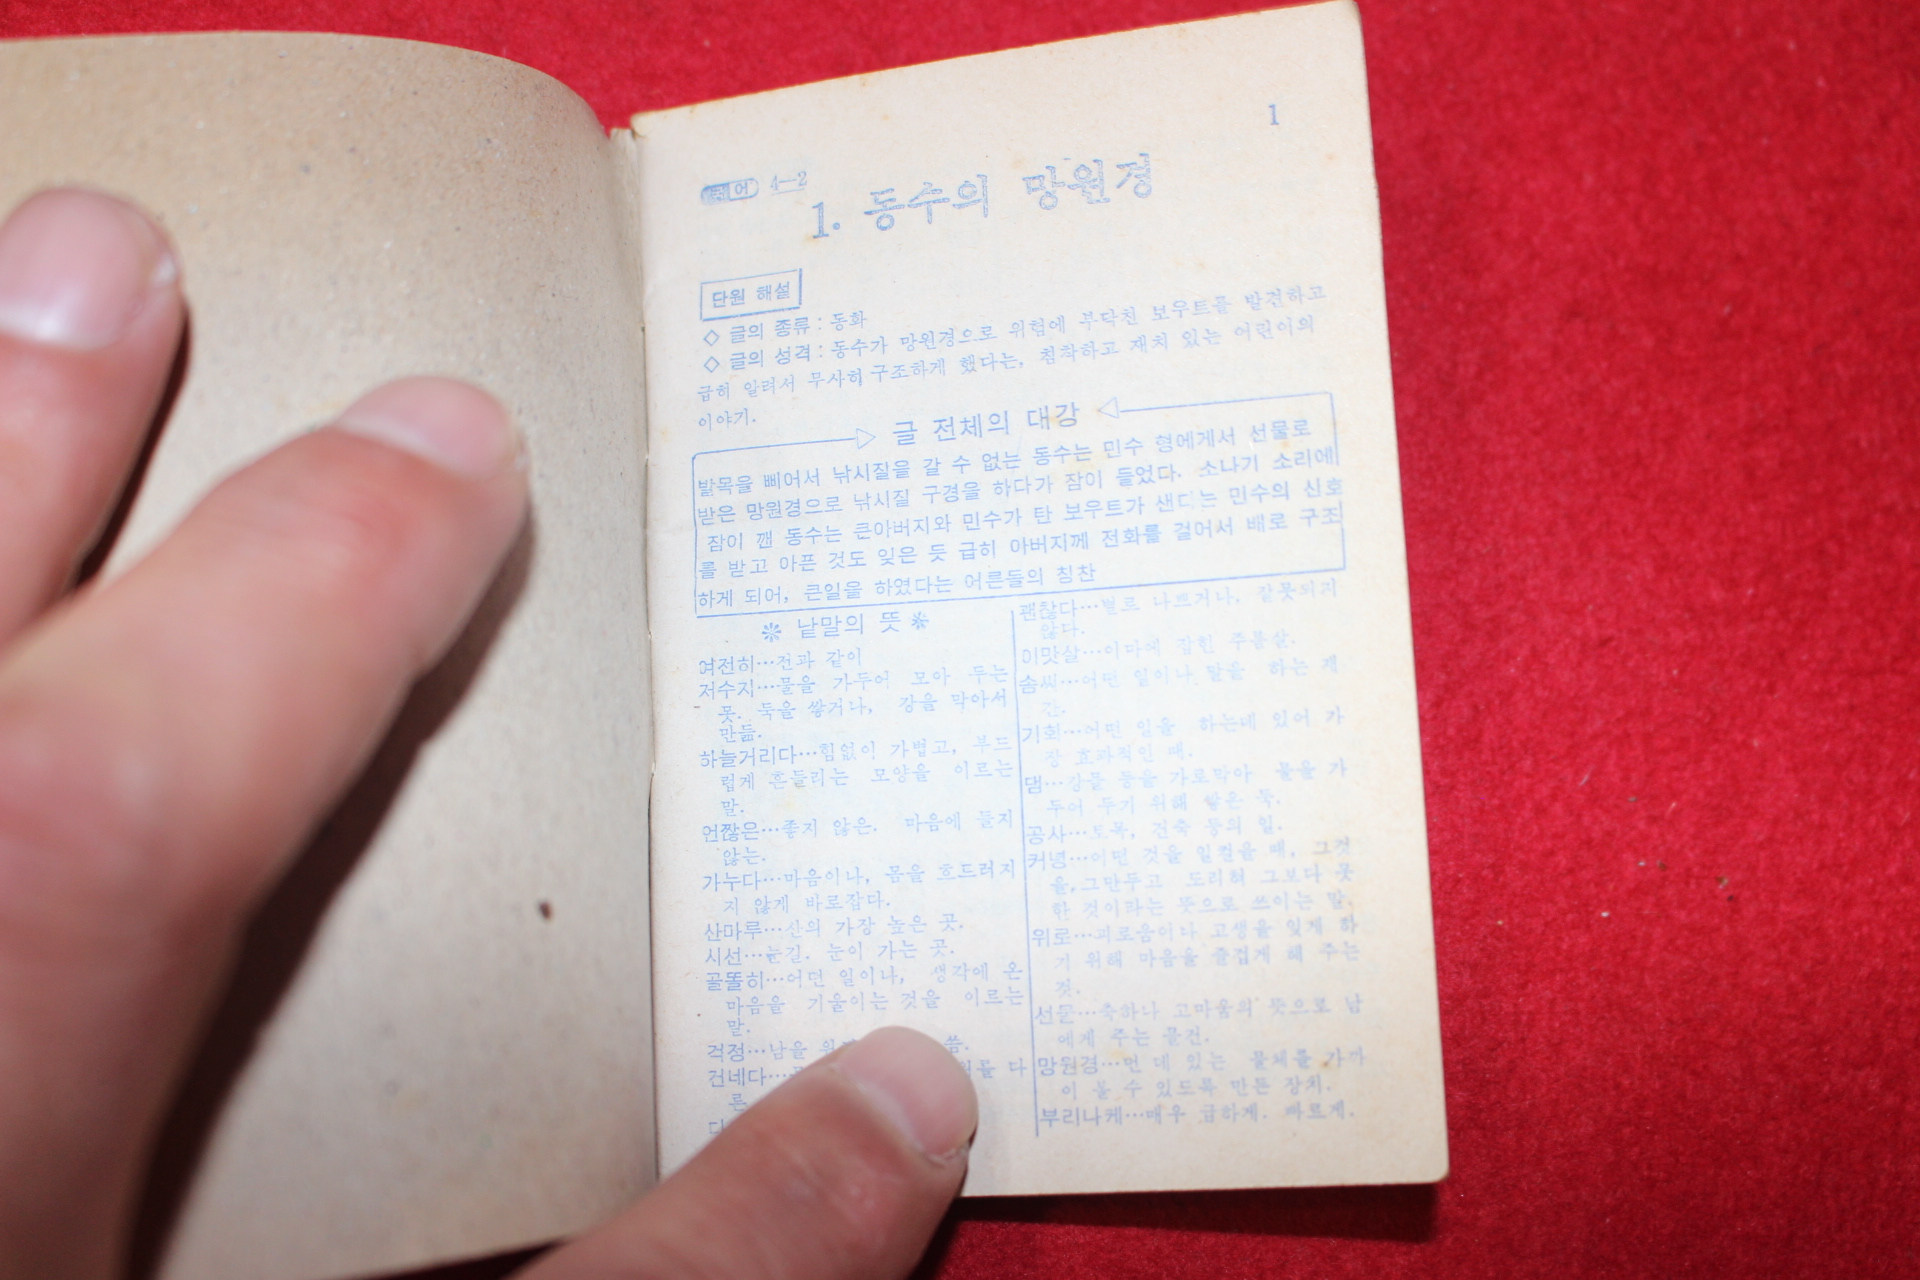 1
국어 4-2
1. 동수의 망원경
단원 해설
◇ 글의 종류 : 동화
◇ 글의 성격 : 동수가 망원경으로 위험에 부닥친 보우트를 발견하고
급히 알려서 무사히 구조하게 했다는, 침착하고 재치 있는 어린이의
이야기.
글 전체의 대강
발목을 삐어서 낚시질을 갈 수 없는 동수는 민수 형에게서 선물로
받은 망원경으로 낚시질 구경을 하다가 잠이 들었다. 소나기 소리에
잠이 깬 동수는 큰아버지와 민수가 탄 보우트가 샌다는 민수의 신호
를 받고 아픈 것도 잊은 듯 급히 아버지께 전화를 걸어서 배로 구조
하게 되어, 큰일을 하였다는 어른들의 칭찬
※ 낱말의 뜻 ※
여전히…전과 같이
저수지…물을 가두어 모아 두는
못. 둑을 쌓거나, 강을 막아서
만듦.
하늘거리다…힘없이 가볍고, 부드
럽게 흔들리는 모양을 이르는
말.
언짢은…좋지 않은. 마음에 들지
않는.
가누다…마음이나, 몸을 흐트러지
지 않게 바로잡다.
산마루…산의 가장 높은 곳.
시선…눈길. 눈이 가는 곳.
골똘히…어떤 일이나, 생각에 온
마음을 기울이는 것을 이르는
말.
걱정…남을 씀.
건네다… 다
른
괜찮다…별로 나쁘거나, 잘못되지
않다.
이맛살…이마에 잡힌 주름살.
솜씨…어떤 일이나 말을 하는 재
간.
기회…어떤 일을 하는데 있어 가
장 효과적인 때.
댐…강물 등을 가로막아 물을 가
두어 두기 위해 쌓은 둑.
공사…토목, 건축 등의 일.
커녕…어떤 것을 일컬을 때, 그것
을 그만두고 도리혀 그보다 못
한 것이라는 뜻으로 쓰이는 말.
위로…괴로움이나 고생을 잊게 하
기 위해 마음을 즐겁게 해 주는
것.
선물…축하나 고마움의 뜻으로 남
에게 주는 물건.
망원경…먼 데 있는 물체를 가까
이 볼 수 있도록 만든 장치.
부리나케…매우 급하게. 빠르게.